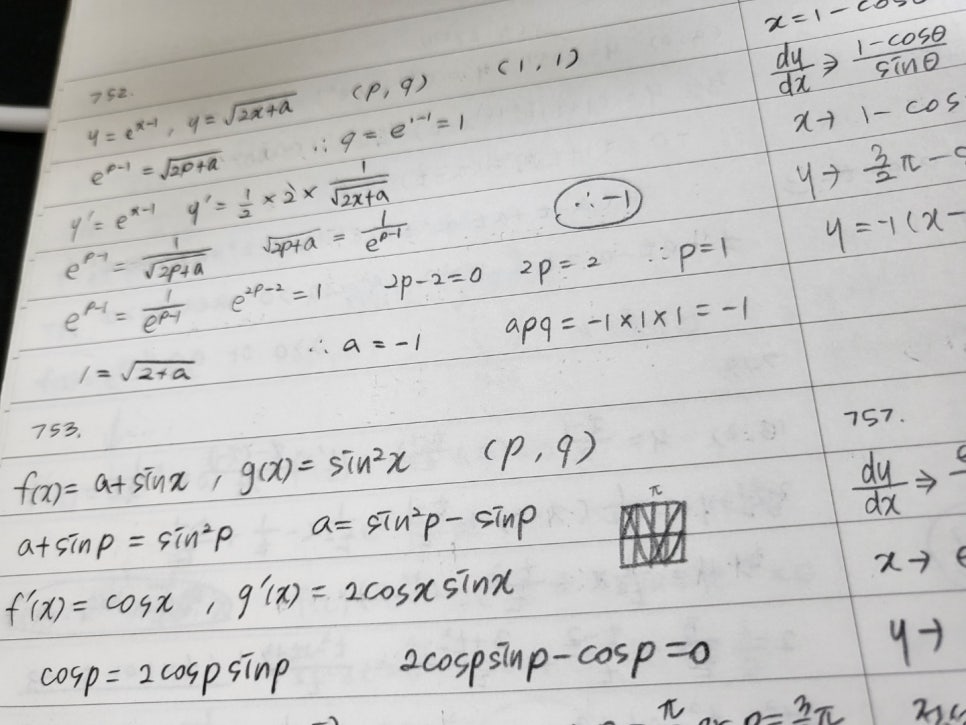 752.
y = e^{x-1} , y = √(2x+a) (p, q) (1, 1)
e^{p-1} = √(2p+a) ∴ q = e^{1-1} = 1
y' = e^{x-1} y' = 1/2 × 2 × 1/√(2x+a)
e^{p-1} = 1/√(2p+a) √(2p+a) = 1/e^{p-1} ∴ -1
e^{p-1} = 1/e^{p-1} e^{2p-2} = 1 2p-2=0 2p = 2 ∴ p=1
1 = √(2+a) ∴ a = -1 apq = -1×1×1 = -1
753.
f(x) = a+sinx , g(x) = sin²x (p, q)
a+sinp = sin²p a = sin²p - sinp π
f'(x) = cosx , g'(x) = 2cosx sinx
cosp = 2cosp sinp 2cospsinp - cosp = 0
π p = 3/2 π
x = 1 - cosθ
dy/dx ⇒ (1-cosθ)/sinθ
x → 1 - cos
y → 3/2 π -
y = -1(x-
757.
dy/dx ⇒
x →
y →